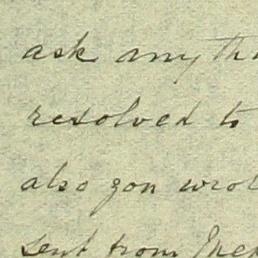 ask any th
resolved to
also you wrot
sent from Mex